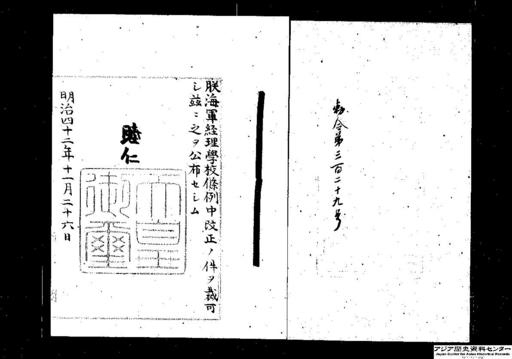 勅令第三百二十九号
朕海軍経理學校條例中改正ノ件ヲ裁可
シ茲ニ之ヲ公布セシム
睦仁
天皇御璽
明治四十二年十一月二十六日
アジア歴史資料センター
Japan Center for Asian Historical Records